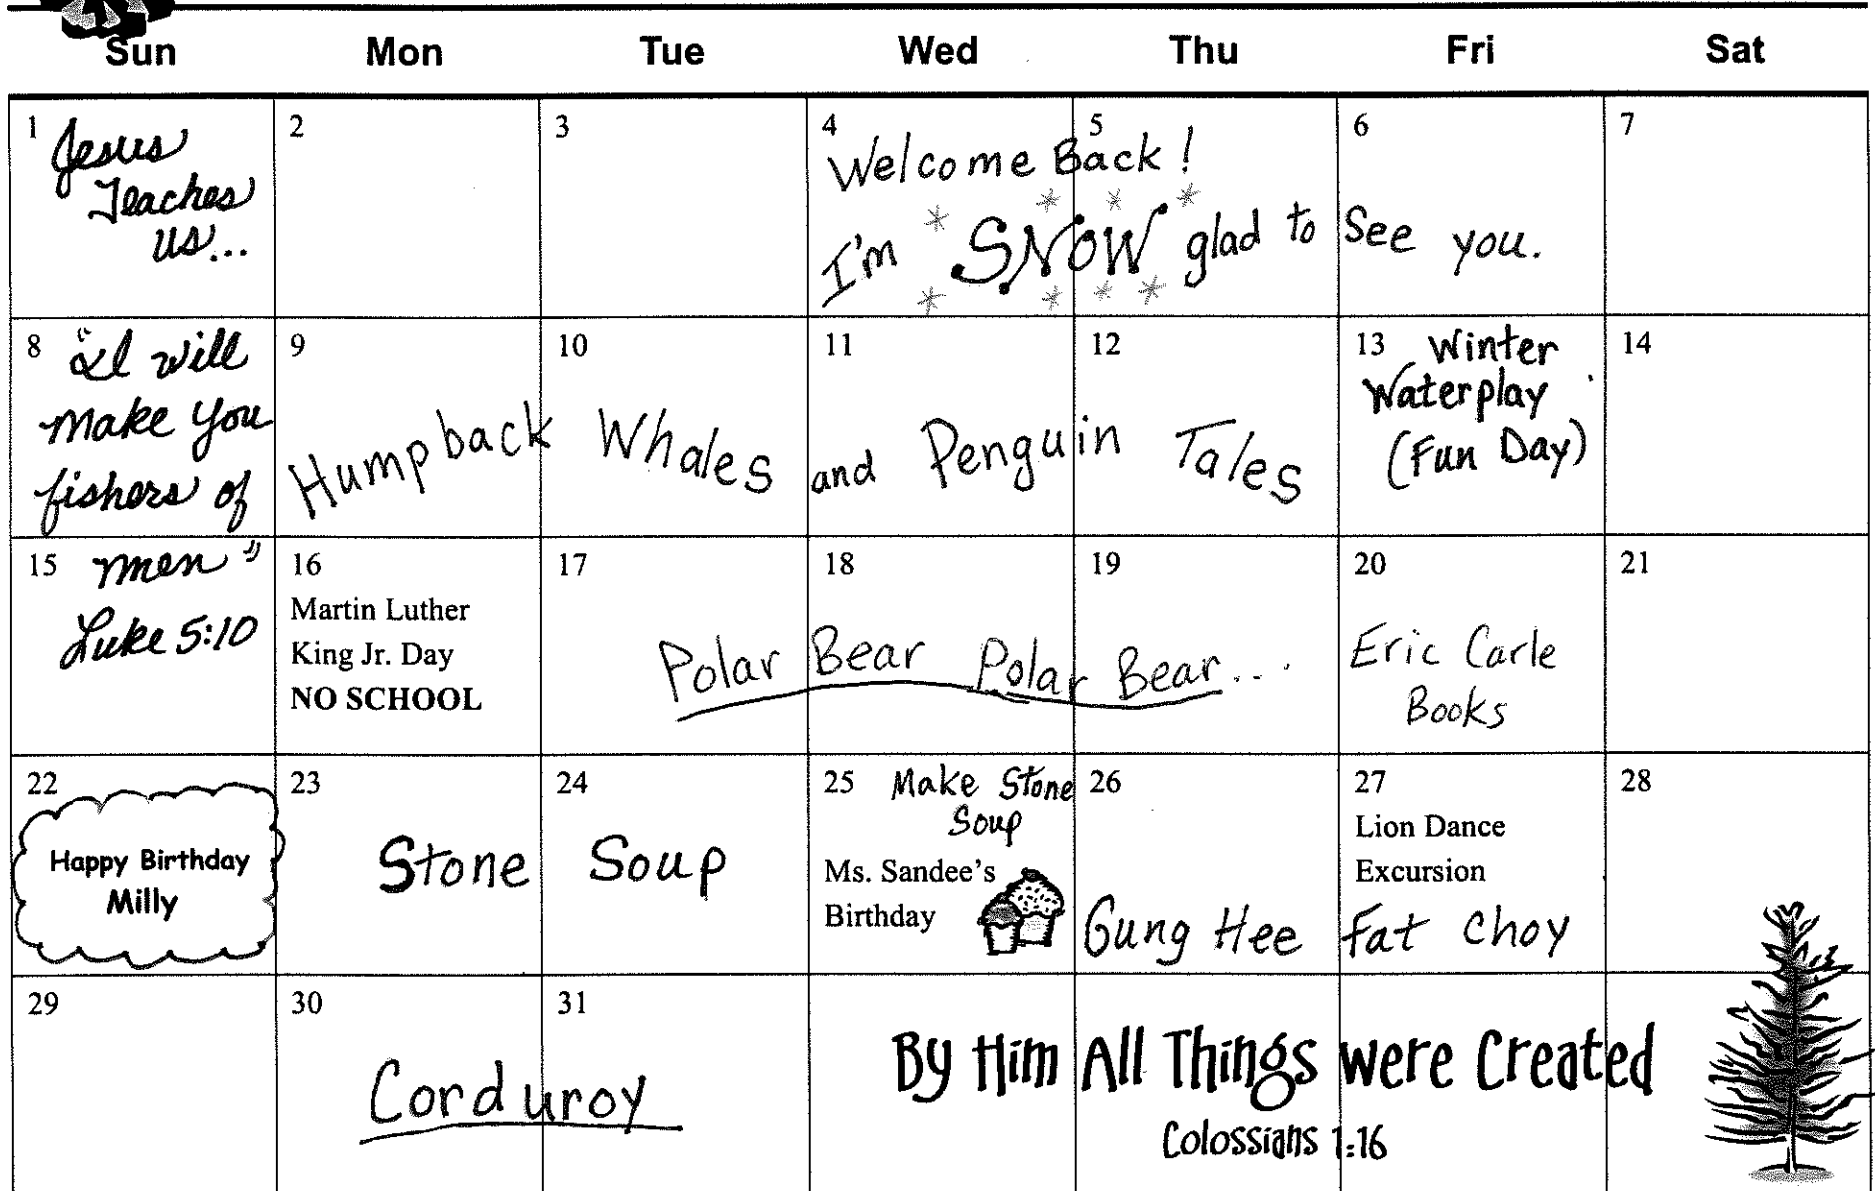 Sun Mon Tue Wed Thu Fri Sat
1 Jesus
Teaches
us...
2
3
4
5
Welcome Back!
I'm SNOW glad to See you.
6
7
8 "I will
make you
fishers of
9
10
11
12
Humpback Whales and Penguin Tales
13 Winter
Waterplay
(Fun Day)
14
15 men"
Luke 5:10
16
Martin Luther
King Jr. Day
NO SCHOOL
17
18
19
Polar Bear Polar Bear...
20
Eric Carle
Books
21
22
Happy Birthday
Milly
23
24
Stone Soup
25 Make Stone
Soup
Ms. Sandee's
Birthday
26
27
Lion Dance
Excursion
Gung Hee Fat Choy
28
29
30
31
Corduroy
By Him All Things were Created
Colossians 1:16